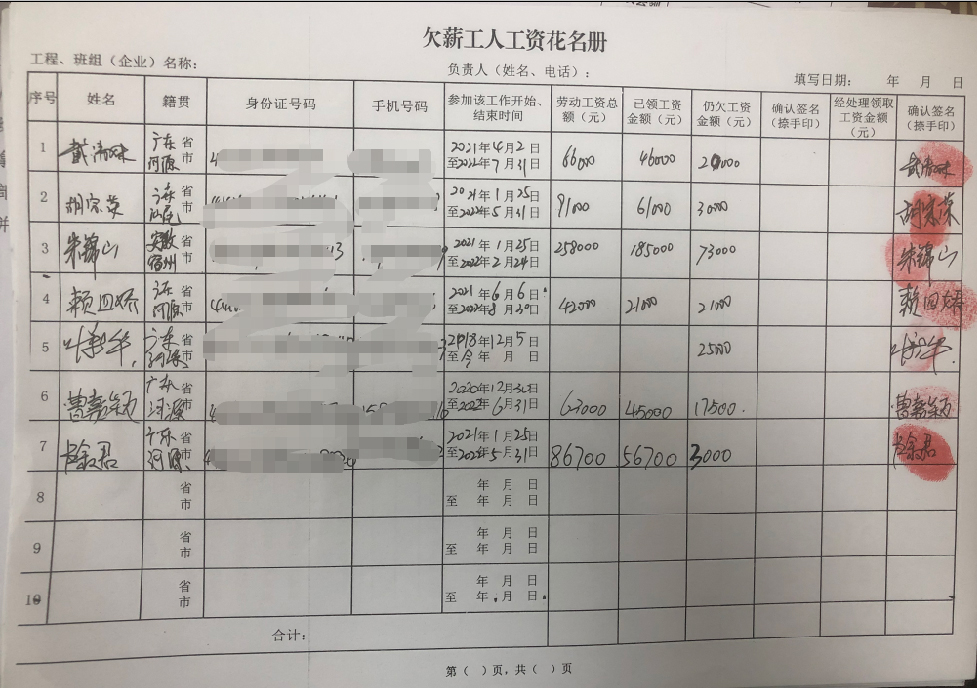 欠薪工人工资花名册
工程、班组(企业)名称: 负责人(姓名、电话): 填写日期: 年 月 日
序号 姓名 籍贯 身份证号码 手机号码 参加该工作开始、结束时间 劳动工资总额(元) 已领工资金额(元) 仍欠工资金额(元) 确认签名(捺手印) 经处理领取工资金额(元) 确认签名(捺手印)
1 广东省河源市 2021年4月2日 至2022年7月31日 66000 46000 20000
2 胡宗荣 广东省汕尾市 2021年1月25日 至2022年5月31日 91000 61000 3000 胡宗荣
3 朱锦山 安徽省宿州市 2021年1月25日 至2022年2月24日 258000 185000 73000 朱锦山
4 赖四娇 广东省河源市 2021年6月6日 至2022年8月30日 42000 21000 21000 赖四娇
5 广东省河源市 2018年12月5日 至今年 月 日 2500
6 曹嘉颖 广东省河源市 2020年12月30日 至2022年6月31日 45000 17500. 曹嘉颖
7 广东省河源市 2021年1月25日 至2022年5月31日 86700 56700 3000
8 省市 年 月 日 至 年 月 日
9 省市 年 月 日 至 年 月 日
10 省市 年 月 日 至 年 月 日
合计:
第( )页,共( )页